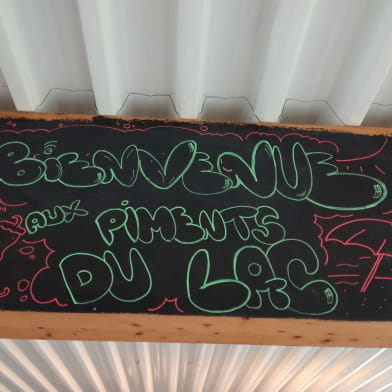 BiENVENUE
AUX PiMENTS
DU LAC